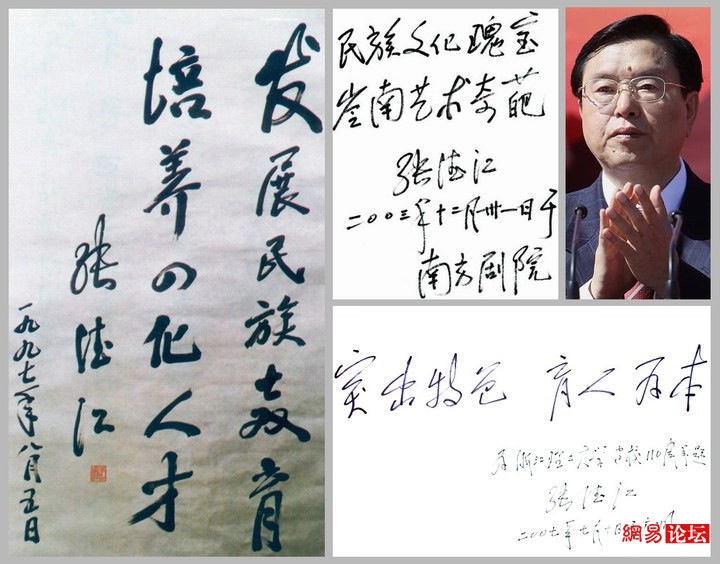 发展民族教育
培养四化人才
张德江
一九九七年八月五日
民族文化瑰宝
岭南艺术奇葩
张德江
二〇〇三年十二月卅一日于
南方剧院
突出特色 育人为本
为浙江理工大学建校110周年题
张德江
二〇〇七年七月十日
網易论坛